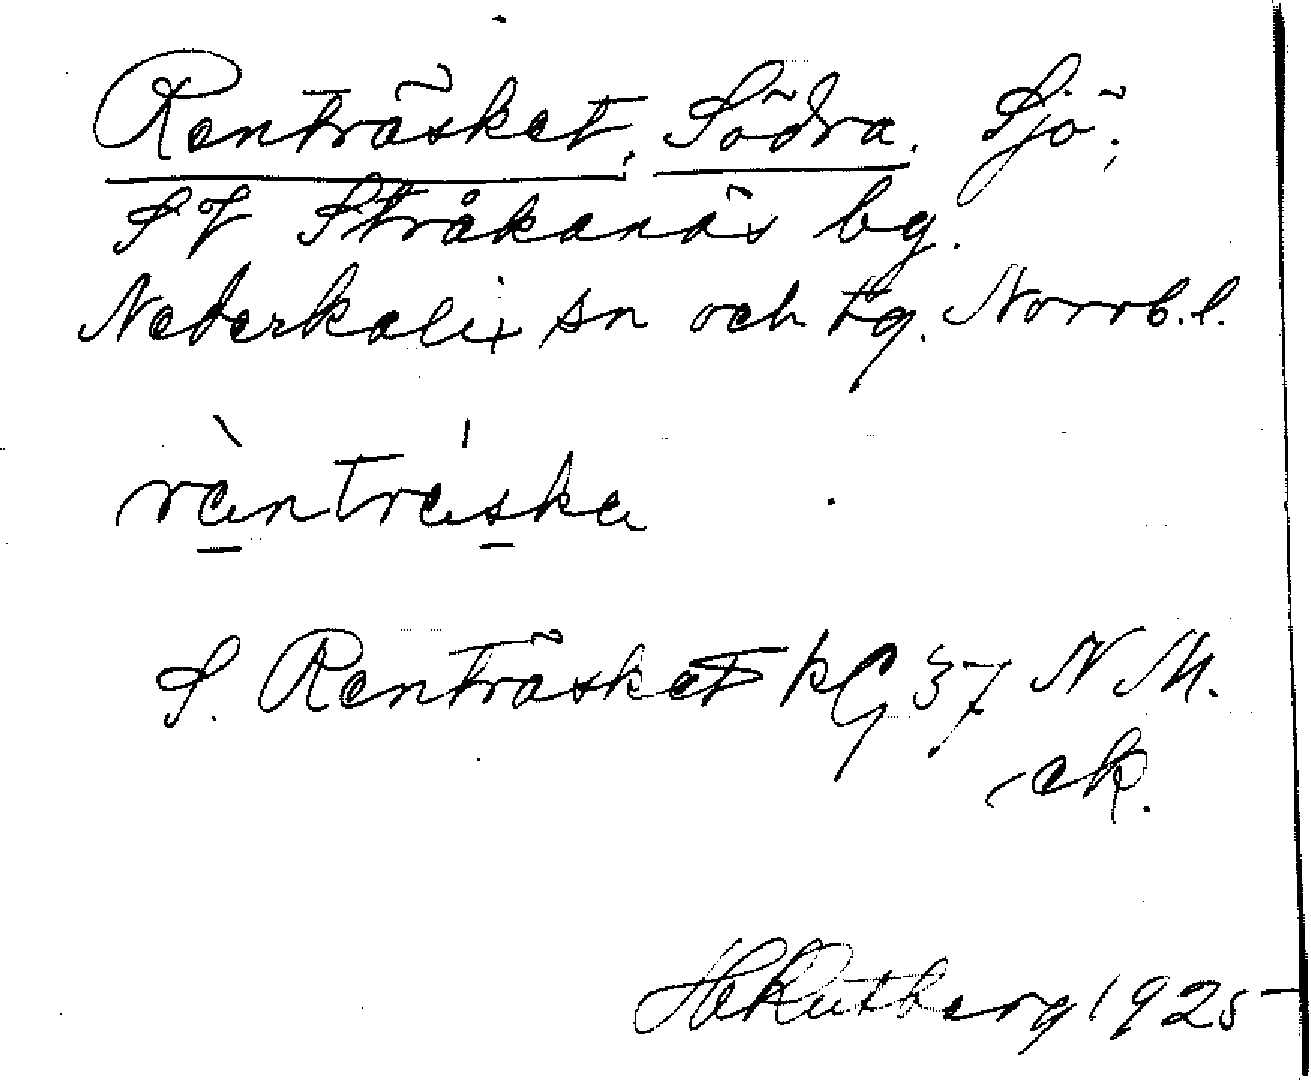 Renträsket, Södra. Sjö;
SV Stråkanäs by.
Nederkalix sn och tg. Norrb. l.
rènträ́ska
S. Renträsket kG 37 N M.
ek.
H Rutberg 1925